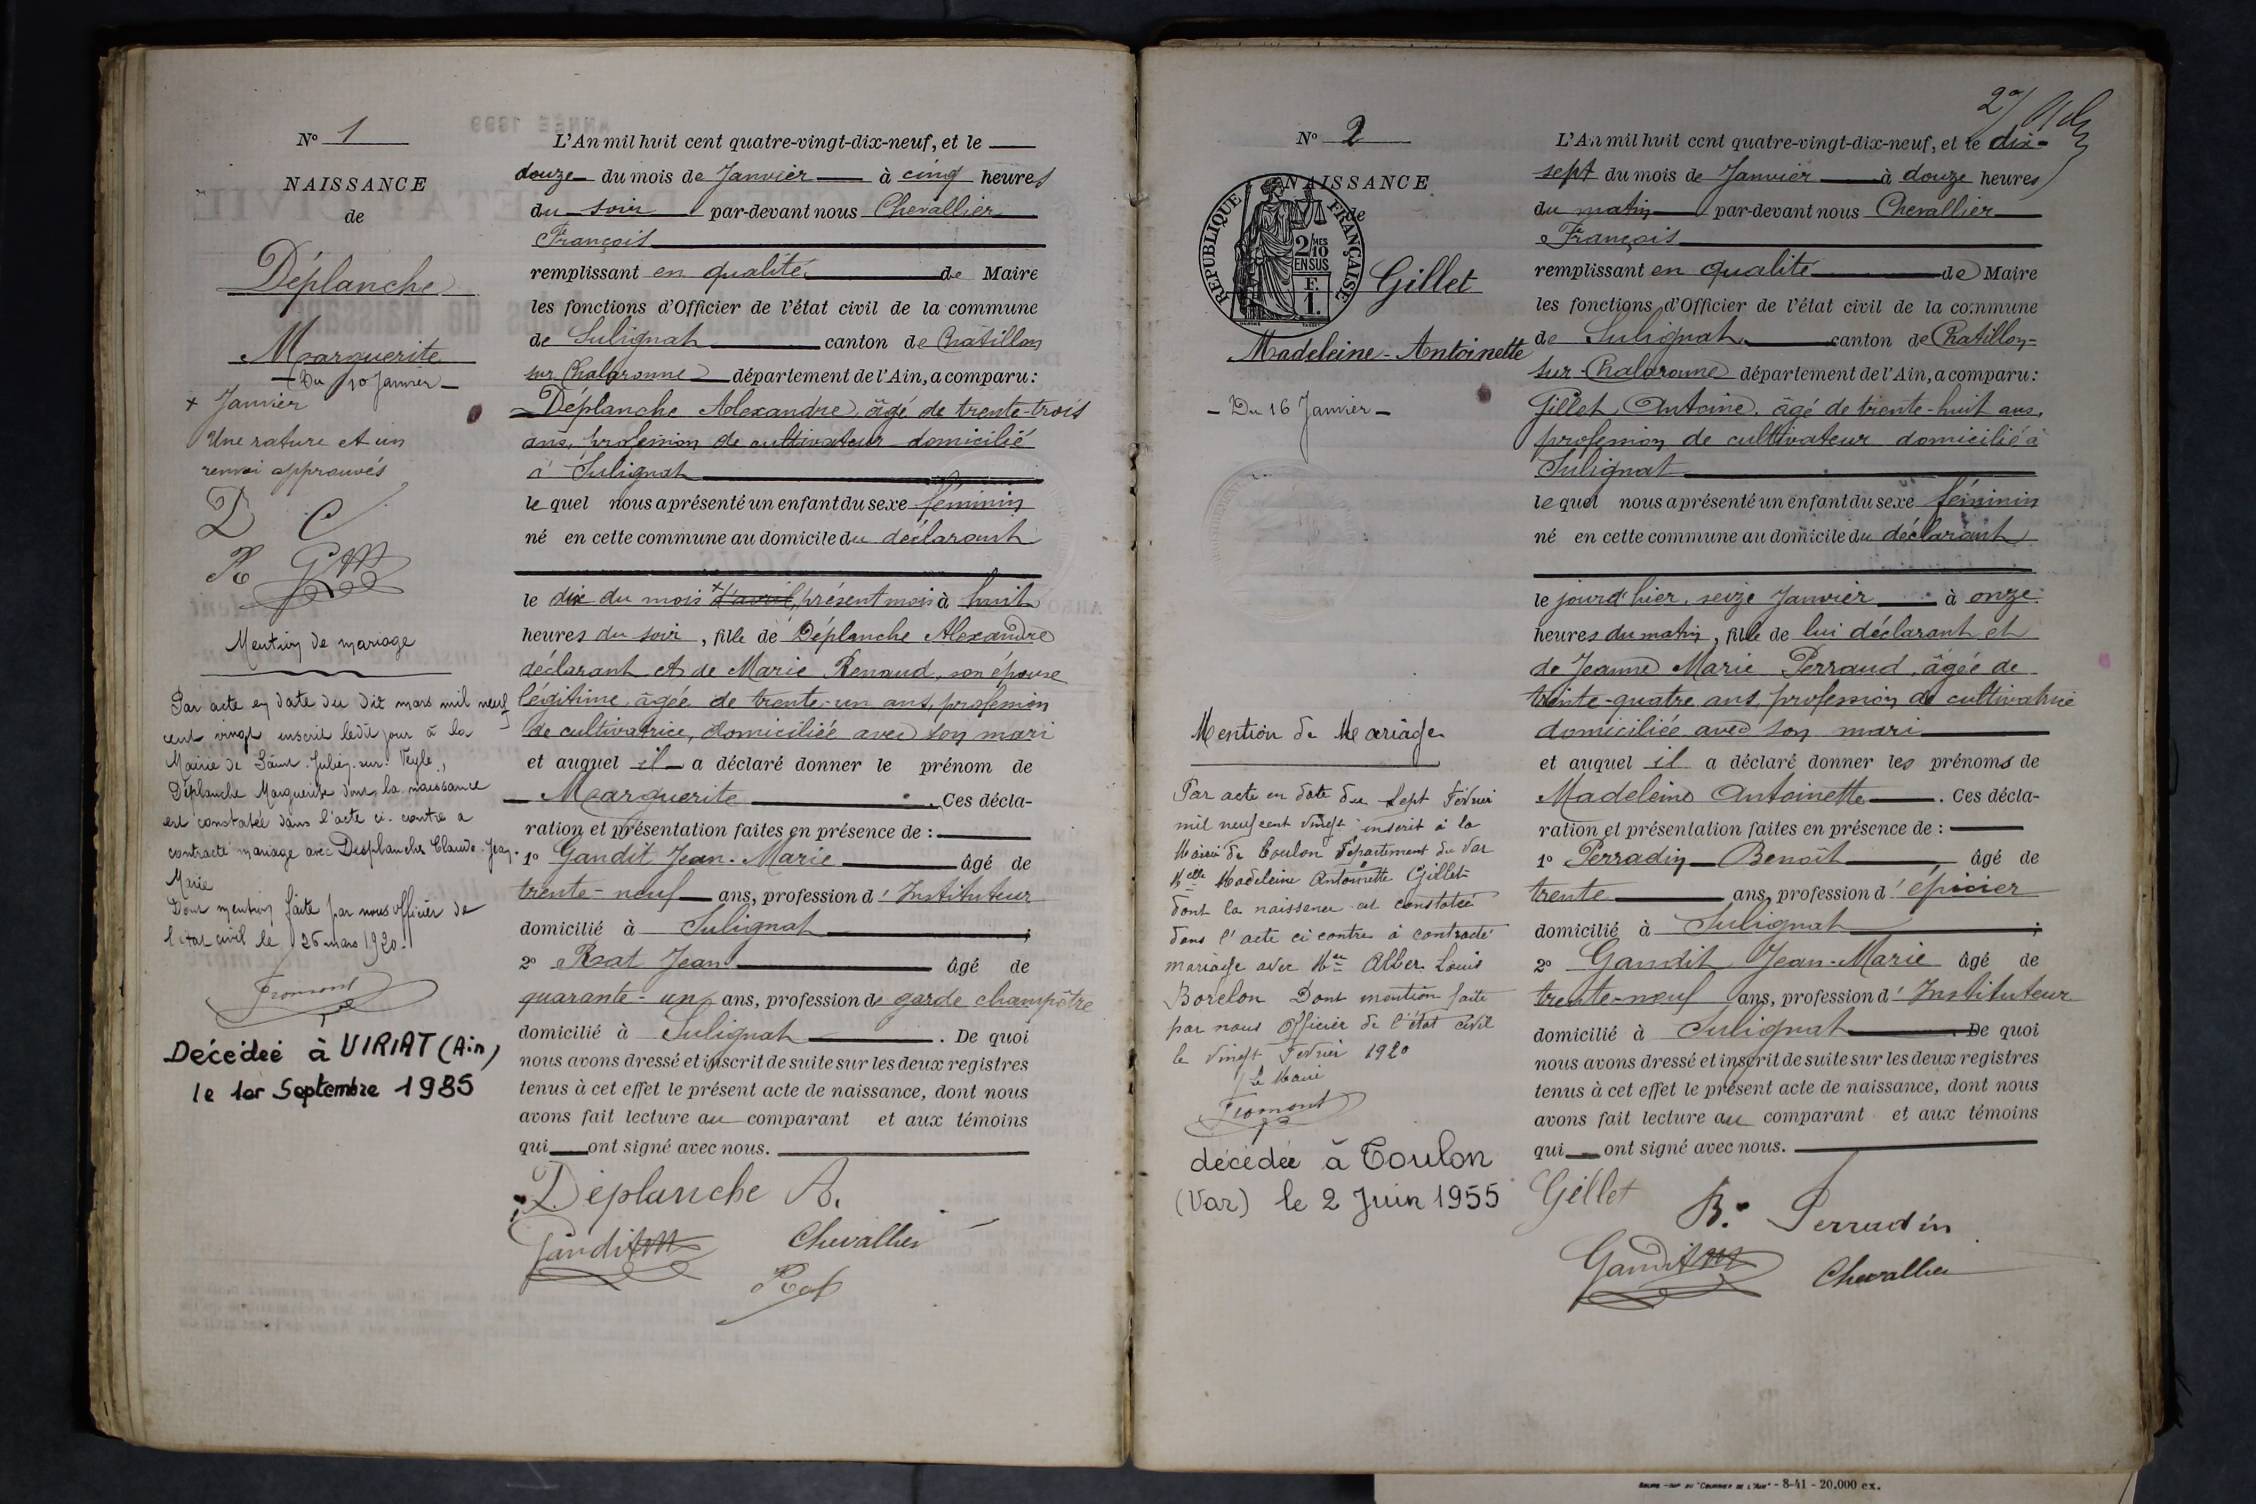 N° 1
NAISSANCE
de
Déplanche
Marguerite
Du 10 Janvier
+ Janvier
Une rature et un
renvoi approuvés
D C
R GM
Mention de mariage
Par acte en date du dit mars mil neuf
cent vingt inscrit ledit jour à la
Mairie de Saint-Julien-sur-Veyle,
Déplanche Marguerite dont la naissance
est constatée dans l'acte ci-contre a
contracté mariage avec Desplanches Claude-Jean-
Marie
Dont mention faite par nous officier de
l'état civil le 26 mars 1920.
Fromont
Décédée à VIRIAT (Ain)
le 1er Septembre 1985
L'An mil huit cent quatre-vingt-dix-neuf, et le
douze du mois de Janvier à cinq heures
du soir par-devant nous Chevallier
François
remplissant en qualité de Maire
les fonctions d'Officier de l'état civil de la commune
de Sulignat canton de Chatillon
sur Chalaronne département de l'Ain, a comparu :
Déplanche Alexandre, âgé de trente-trois
ans, profession de cultivateur domicilié
à Sulignat
le quel nous a présenté un enfant du sexe féminin
né en cette commune au domicile du déclarant
le dix du mois + d'avril, présent mois à huit
heures du soir, fille de Déplanche Alexandre
déclarant et de Marie Renaud, son épouse
légitime âgée de trente-un ans, profession
de cultivatrice, domiciliée avec son mari
et auquel il a déclaré donner le prénom de
Marguerite . Ces décla-
ration et présentation faites en présence de :
1° Gandit Jean-Marie âgé de
trente-neuf ans, profession d'Instituteur
domicilié à Sulignat ;
2° Rat Jean âgé de
quarante-un ans, profession de garde champêtre
domicilié à Sulignat . De quoi
nous avons dressé et inscrit de suite sur les deux registres
tenus à cet effet le présent acte de naissance, dont nous
avons fait lecture au comparant et aux témoins
qui ont signé avec nous.
Déplanche A.
Gandit Chevallier
Rat
N° 2
NAISSANCE
de
REPUBLIQUE FRANÇAISE
2/10MES
EN SUS
F.
1.
Gillet
Madeleine-Antoinette
- Du 16 Janvier -
Mention de Mariage
Par acte en date du sept Février
mil neuf cent vingt inscrit à la
Mairie de Toulon département du Var
Melle Madeleine Antoinette Gillet
dont la naissance est constatée
dans l'acte ci contre à contracté
mariage avec Mr Alber Louis
Borelon Dont mention faite
par nous Officier de l'état civil
le vingt Fevrier 1920
Le Maire
Fromont
décédée à Toulon
(Var) le 2 Juin 1955
L'An mil huit cent quatre-vingt-dix-neuf, et le dix-
sept du mois de Janvier à douze heures
du matin par-devant nous Chevallier
François
remplissant en qualité de Maire
les fonctions d'Officier de l'état civil de la commune
de Sulignat canton de Chatillon-
sur-Chalaronne département de l'Ain, a comparu :
Gillet Antoine, âgé de trente-huit ans,
profession de cultivateur domicilié à
Sulignat
le quel nous a présenté un enfant du sexe féminin
né en cette commune au domicile du déclarant
le jourd'hier, seize Janvier à onze
heures du matin, fille de lui déclarant et
de Jeanne Marie Perraud, âgée de
trente-quatre ans, profession de cultivatrice
domiciliée avec son mari
et auquel il a déclaré donner les prénoms de
Madeleine Antoinette . Ces décla-
ration et présentation faites en présence de :
1° Perradin Benoît, âgé de
trente ans, profession d'épicier
domicilié à Sulignat ;
2° Gandit Jean-Marie âgé de
trente-neuf ans, profession d'Instituteur
domicilié à Sulignat . De quoi
nous avons dressé et inscrit de suite sur les deux registres
tenus à cet effet le présent acte de naissance, dont nous
avons fait lecture au comparant et aux témoins
qui ont signé avec nous.
Gillet B. Perradin
Gandit Chevallier
"COURRIER DE L'AIN" - 8-41 - 20.000 ex.